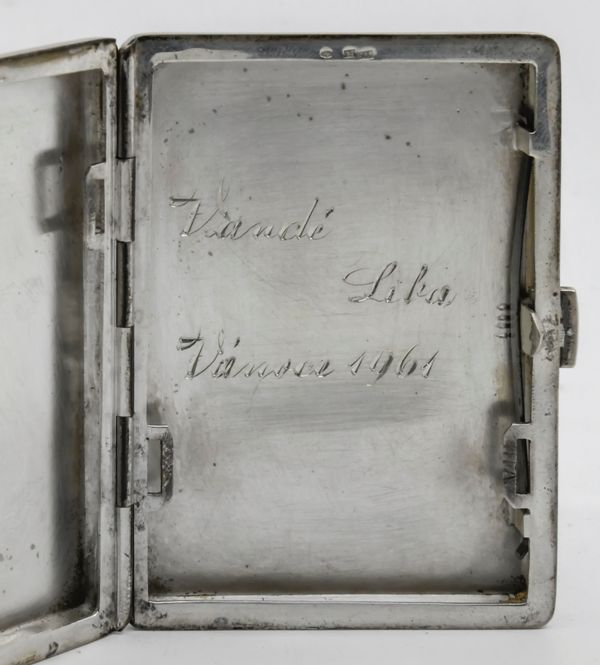 Vandé
Liba
Vánoce 1961